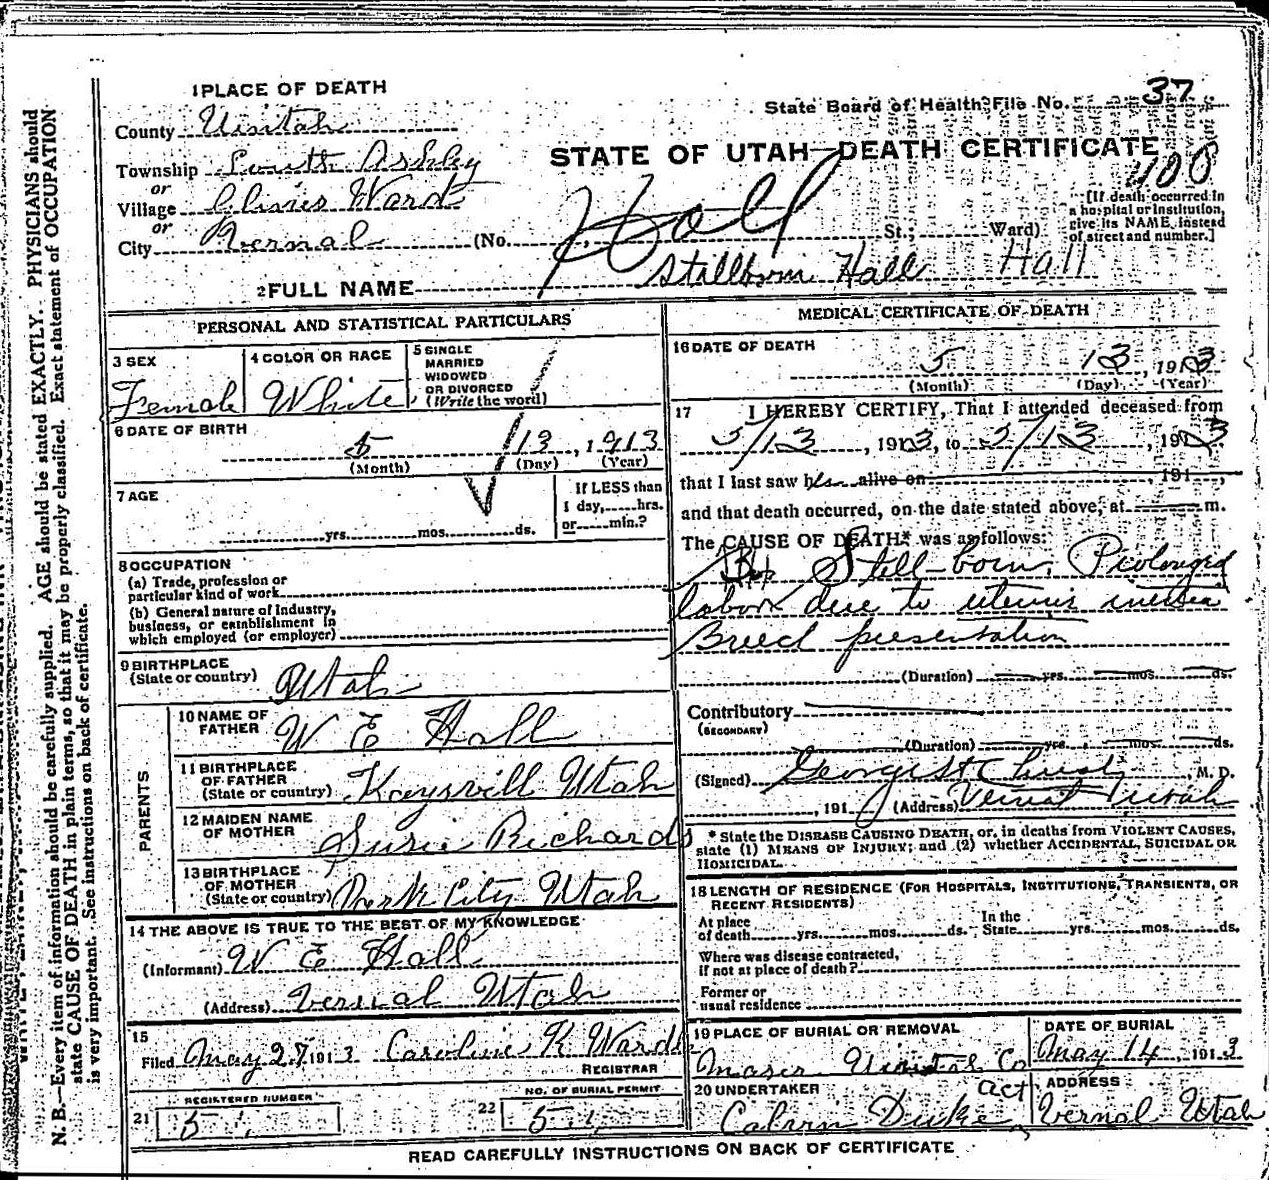 1 PLACE OF DEATH
State Board of Health File No. 37
County Uintah
STATE OF UTAH—DEATH CERTIFICATE
Township South Ashley
400
or
Village Ward
or
City Vernal (No. St., Ward)
[If death occurred in a hospital or institution, give its NAME instead of street and number.]
Hall
2 FULL NAME Stillborn Hall Hall
PERSONAL AND STATISTICAL PARTICULARS
3 SEX
Female
4 COLOR OR RACE
White
5 SINGLE
MARRIED
WIDOWED
OR DIVORCED
(Write the word)
6 DATE OF BIRTH
5 13, 1913
(Month) (Day) (Year)
7 AGE
yrs. mos. ds.
If LESS than
1 day, hrs.
or min.?
8 OCCUPATION
(a) Trade, profession or
particular kind of work
(b) General nature of Industry,
business, or establishment in
which employed (or employer)
9 BIRTHPLACE
(State or country) Utah
PARENTS
10 NAME OF
FATHER W E Hall
11 BIRTHPLACE
OF FATHER
(State or country) Kaysvill Utah
12 MAIDEN NAME
OF MOTHER Susie Richards
13 BIRTHPLACE
OF MOTHER
(State or country) Park City Utah
14 THE ABOVE IS TRUE TO THE BEST OF MY KNOWLEDGE
(Informant) W E Hall
(Address) Vernal Utah
15
Filed May 27 1913 Caroline K Ward
REGISTRAR
REGISTERED NUMBER
21 5
NO. OF BURIAL PERMIT
22 5
MEDICAL CERTIFICATE OF DEATH
16 DATE OF DEATH
5 13, 1913
(Month) (Day) (Year)
17 I HEREBY CERTIFY, That I attended deceased from
5/13, 1913, to 5/13 1913
that I last saw h alive on , 191 ,
and that death occurred, on the date stated above, at m.
The CAUSE OF DEATH* was as follows:
Still-born, Prolonged
labor due to uterus inertia
Breech presentation
(Duration) yrs. mos. ds.
Contributory
(SECONDARY)
(Duration) yrs. mos. ds.
(Signed) , M. D.
, 191 (Address) Vernal Utah
* State the DISEASE CAUSING DEATH, or, in deaths from VIOLENT CAUSES,
state (1) MEANS OF INJURY; and (2) whether ACCIDENTAL, SUICIDAL OR
HOMICIDAL.
18 LENGTH OF RESIDENCE (FOR HOSPITALS, INSTITUTIONS, TRANSIENTS, OR
RECENT RESIDENTS)
At place
of death yrs. mos. ds.
In the
State yrs. mos. ds.
Where was disease contracted,
if not at place of death?
Former or
usual residence
19 PLACE OF BURIAL OR REMOVAL
Maser Uintah Co
DATE OF BURIAL
May 14, 1913
20 UNDERTAKER act
Calvin Duke,
ADDRESS
Vernal Utah
READ CAREFULLY INSTRUCTIONS ON BACK OF CERTIFICATE
N. B.—Every item of information should be carefully supplied. AGE should be stated EXACTLY. PHYSICIANS should
state CAUSE OF DEATH in plain terms, so that it may be properly classified. Exact statement of OCCUPATION
is very important. See instructions on back of certificate.